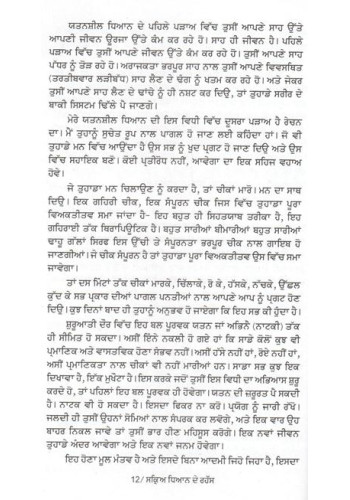 ਯਤਨਸ਼ੀਲ ਧਿਆਨ ਦੇ ਪਹਿਲੇ ਪੜਾਅ ਵਿੱਚ ਤੁਸੀਂ ਆਪਣੇ ਸਾਹ ਉੱਤੇ
ਆਪਣੀ ਜੀਵਨ ਊਰਜਾ ਉੱਤੇ ਕੰਮ ਕਰ ਰਹੇ ਹੋ। ਸਾਹ ਹੀ ਜੀਵਨ ਹੈ। ਪਹਿਲੇ
ਪੜਾਅ ਵਿੱਚ ਤੁਸੀਂ ਆਪਣੇ ਜੀਵਨ ਉੱਤੇ ਕੰਮ ਕਰ ਰਹੇ ਹੋ। ਤੁਸੀਂ ਆਪਣੇ ਸਾਹ
ਪੱਧਰ ਨੂੰ ਤੋੜ ਰਹੇ ਹੋ। ਅਰਾਜਕਤਾ ਭਰਪੂਰ ਸਾਹ ਨਾਲ ਤੁਸੀਂ ਆਪਣੇ ਵਿਵਸਥਿਤ
(ਤਰਤੀਬਵਾਰ ਲੜੀਬੱਧ) ਸਾਹ ਲੈਣ ਦੇ ਢੰਗ ਨੂੰ ਖਤਮ ਕਰ ਰਹੇ ਹੋ। ਅਤੇ ਜੇਕਰ
ਤੁਸੀਂ ਆਪਣੇ ਸਾਹ ਲੈਣ ਦੇ ਢਾਂਚੇ ਨੂੰ ਹੀ ਨਸ਼ਟ ਕਰ ਦਿਉ, ਤਾਂ ਤੁਹਾਡੇ ਸਰੀਰ ਦੇ
ਬਾਕੀ ਸਿਸਟਮ ਢਿੱਲੇ ਪੈ ਜਾਣਗੇ।
ਮੇਰੇ ਯਤਨਸ਼ੀਲ ਧਿਆਨ ਦੀ ਇਸ ਵਿਧੀ ਵਿੱਚ ਦੂਸਰਾ ਪੜਾਅ ਹੈ ਰੇਚਨ
ਦਾ। ਮੈਂ ਤੁਹਾਨੂੰ ਸੁਚੇਤ ਰੂਪ ਨਾਲ ਪਾਗਲ ਹੋ ਜਾਣ ਲਈ ਕਹਿੰਦਾ ਹਾਂ। ਜੋ ਵੀ
ਤੁਹਾਡੇ ਮਨ ਵਿੱਚ ਆਉਂਦਾ ਹੈ ਉਸ ਸਭ ਨੂੰ ਖੁਦ ਪ੍ਰਗਟ ਹੋ ਜਾਣ ਦਿਉ ਅਤੇ ਉਸ
ਵਿੱਚ ਸਹਾਇਕ ਬਣੋ। ਕੋਈ ਪ੍ਰਤੀਰੋਧ ਨਹੀਂ, ਆਵੇਗਾ ਦਾ ਇਕ ਸਹਿਜ ਵਹਾਅ
ਹੋਵੇ।
ਜੇ ਤੁਹਾਡਾ ਮਨ ਚਿਲਾਉਣ ਨੂੰ ਕਰਦਾ ਹੈ, ਤਾਂ ਚੀਕਾਂ ਮਾਰੋ। ਮਨ ਦਾ ਸਾਥ
ਦਿਉ। ਇਕ ਗਹਿਰੀ ਚੀਕ, ਇਕ ਸੰਪੂਰਨ ਚੀਕ ਜਿਸ ਵਿੱਚ ਤੁਹਾਡਾ ਪੂਰਾ
ਵਿਅਕਤੀਤਵ ਸਮਾ ਜਾਂਦਾ ਹੈ- ਇਹ ਬਹੁਤ ਹੀ ਸਿਹਤਯਾਬ ਤਰੀਕਾ ਹੈ, ਇਹ
ਗਹਿਰਾਈ ਤੱਕ ਥਿਰਾਪਿਉਟਿਕ ਹੈ। ਬਹੁਤ ਸਾਰੀਆਂ ਬੀਮਾਰੀਆਂ ਬਹੁਤ ਸਾਰੀਆਂ
ਢਾਹੂ ਗੱਲਾਂ ਸਿਰਫ ਇਸ ਉੱਚੀ ਤੇ ਸੰਪੂਰਨਤਾ ਭਰਪੂਰ ਚੀਕ ਨਾਲ ਗਾਇਬ ਹੋ
ਜਾਣਗੀਆਂ। ਜੇ ਚੀਕ ਸੰਪੂਰਨ ਹੈ ਤਾਂ ਤੁਹਾਡਾ ਪੂਰਾ ਵਿਅਕਤੀਤਵ ਉਸ ਵਿੱਚ ਸਮਾ
ਜਾਵੇਗਾ।
ਤਾਂ ਦਸ ਮਿੰਟਾਂ ਤੱਕ ਚੀਕਾਂ ਮਾਰਕੇ, ਚਿੱਲਾਕੇ, ਰੋ ਕੇ, ਹੱਸਕੇ, ਨੱਚਕੇ, ਉੱਛਲ
ਕੁੱਦ ਕੇ ਸਭ ਪ੍ਰਕਾਰ ਦੀਆਂ ਪਾਗਲ ਪਨਤੀਆਂ ਨਾਲ ਆਪਣੇ ਆਪ ਨੂੰ ਪ੍ਰਗਟ ਹੋਣ
ਦਿਉ। ਕੁਝ ਦਿਨਾਂ ਬਾਦ ਹੀ ਤੁਹਾਨੂੰ ਅਨੁਭਵ ਹੋ ਜਾਏਗਾ ਕਿ ਇਹ ਸਭ ਕੀ ਹੁੰਦਾ ਹੈ।
ਸ਼ੁਰੂਆਤੀ ਦੌਰ ਵਿੱਚ ਇਹ ਬਲ ਪੂਰਵਕ ਯਤਨ ਜਾਂ ਅਭਿਨੈ (ਨਾਟਕੀ) ਤੱਕ
ਹੀ ਸੀਮਿਤ ਹੋ ਸਕਦਾ। ਅਸੀਂ ਇੰਨੇ ਨਕਲੀ ਹੋ ਗਏ ਹਾਂ ਕਿ ਸਾਡੇ ਕੋਲੋਂ ਕੁਝ ਵੀ
ਪ੍ਰਮਾਣਿਕ ਅਤੇ ਵਾਸਤਵਿਕ ਹੋਣਾ ਸੰਭਵ ਨਹੀਂ। ਅਸੀਂ ਹੱਸੇ ਨਹੀਂ ਹਾਂ, ਰੋਏ ਨਹੀਂ ਹਾਂ,
ਅਸੀਂ ਪ੍ਰਮਾਣਿਕਤਾ ਨਾਲ ਚੀਕਾਂ ਵੀ ਨਹੀਂ ਮਾਰੀਆਂ ਹਨ। ਸਾਡਾ ਸਭ ਕੁਝ ਇਕ
ਦਿਖਾਵਾ ਹੈ, ਇੱਕ ਮੁਖੌਟਾ ਹੈ। ਇਸ ਕਰਕੇ ਜਦੋਂ ਤੁਸੀਂ ਇਸ ਵਿਧੀ ਦਾ ਅਭਿਆਸ ਸ਼ੁਰੂ
ਕਰਦੇ ਹੋ, ਤਾਂ ਪਹਿਲਾਂ ਇਹ ਬਲ ਪੂਰਵਕ ਹੀ ਹੋਵੇਗਾ। ਯਤਨ ਦੀ ਜ਼ਰੂਰਤ ਪੈ ਸਕਦੀ
ਹੈ। ਨਾਟਕ ਵੀ ਹੋ ਸਕਦਾ ਹੈ। ਇਸਦਾ ਫਿਕਰ ਨਾ ਕਰੋ। ਪ੍ਰਯੋਗ ਨੂੰ ਜਾਰੀ ਰੱਖੋ।
ਜਲਦੀ ਹੀ ਤੁਸੀਂ ਉਹਨਾਂ ਸੋਮਿਆਂ ਨਾਲ ਸੰਪਰਕ ਕਰ ਲਵੋਗੇ, ਅਤੇ ਇਕ ਵਾਰ ਉਹ
ਬਾਹਰ ਨਿਕਲ ਜਾਵੇ ਤਾਂ ਤੁਸੀਂ ਭਾਰ ਹੀਣ ਮਹਿਸੂਸ ਕਰੋਗੇ। ਇਕ ਨਵਾਂ ਜੀਵਨ
ਤੁਹਾਡੇ ਅੰਦਰ ਆਵੇਗਾ ਅਤੇ ਇਕ ਨਵਾਂ ਜਨਮ ਹੋਵੇਗਾ।
ਇਹ ਹੋਣਾ ਮੂਲ ਮੰਤਵ ਹੈ ਅਤੇ ਇਸਦੇ ਬਿਨਾ ਆਦਮੀ ਜਿਹੋ ਜਿਹਾ ਹੈ, ਇਸਦਾ
12/ ਸਕ੍ਰਿਅ ਧਿਆਨ ਦੇ ਰਹੱਸ